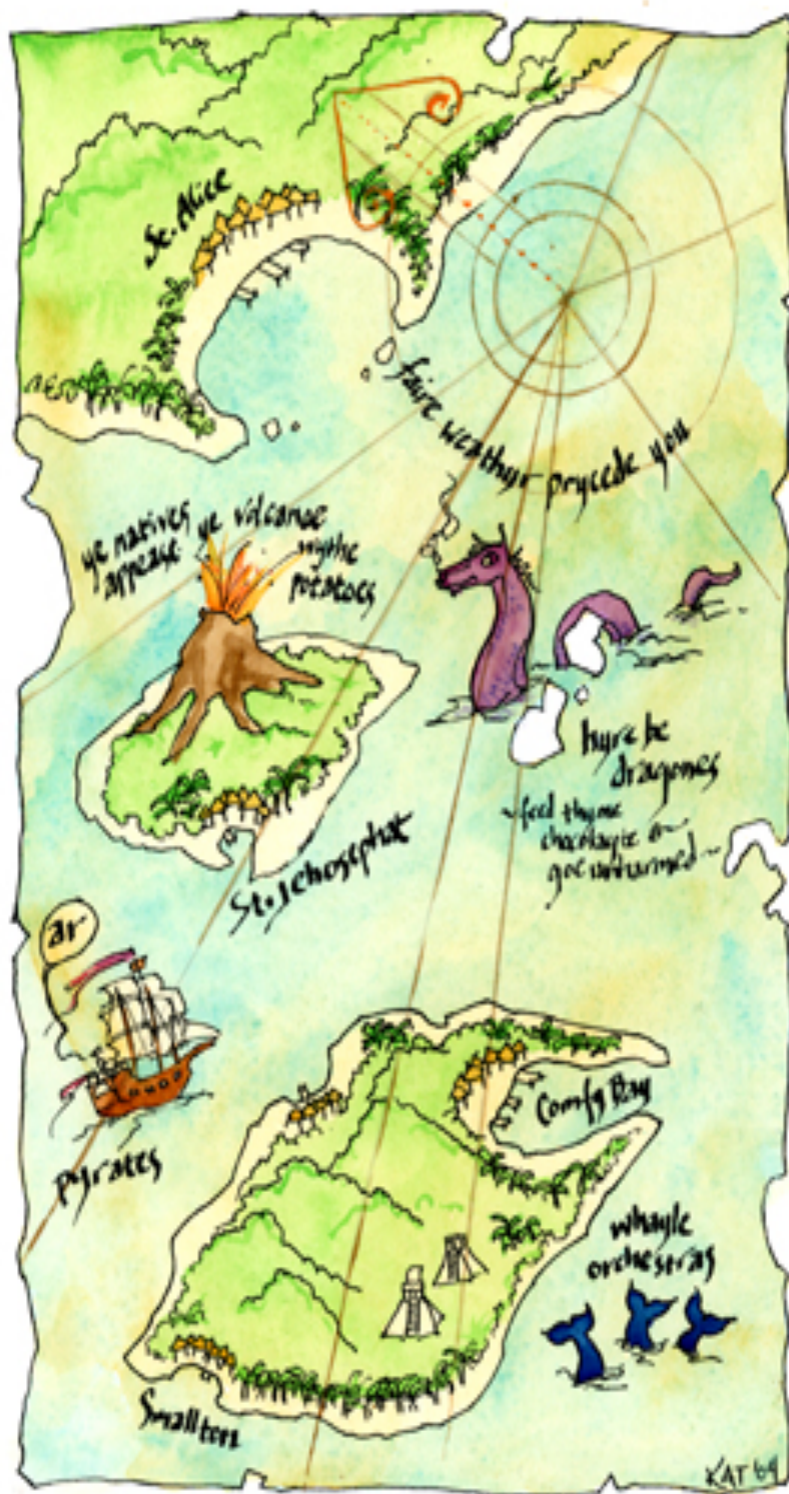 St. Alice
faire weathyr prycede you
ye natives ye volcanoe
appease wythe
potatoes
hyre be
dragones
~feed thyme
chocolayte &~
goe unharmed~
St. Jehosephat
ar
pyrates
Comfy Bay
whayle
orchestras
Smallton
KAT '04